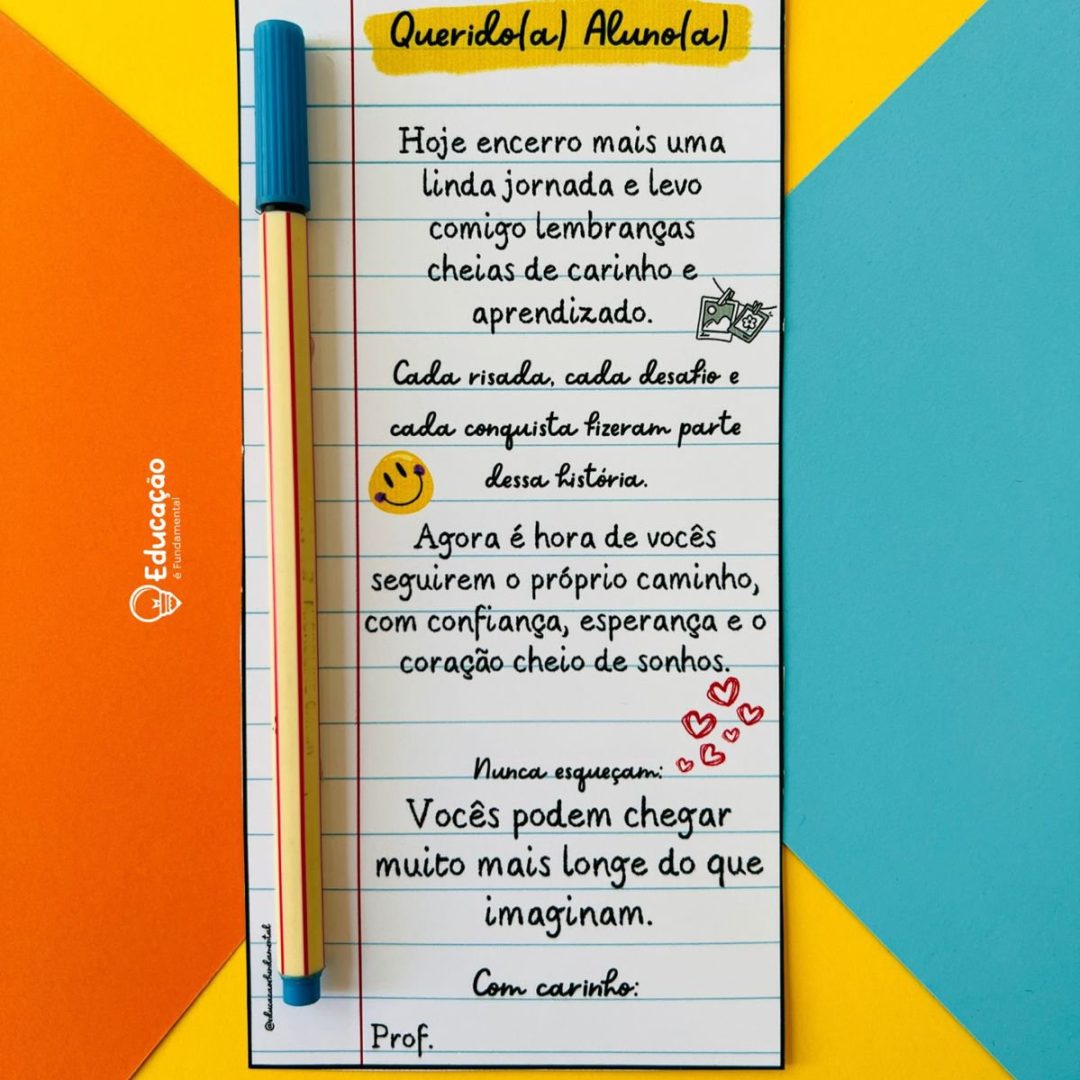 Querido(a) Aluno(a)
Hoje encerro mais uma
linda jornada e levo
comigo lembranças
cheias de carinho e
aprendizado.
Cada risada, cada desafio e
cada conquista fizeram parte
dessa história.
Agora é hora de vocês
seguirem o próprio caminho,
com confiança, esperança e o
coração cheio de sonhos.
Nunca esqueçam:
Vocês podem chegar
muito mais longe do que
imaginam.
Com carinho:
Prof.
Educação
é Fundamental